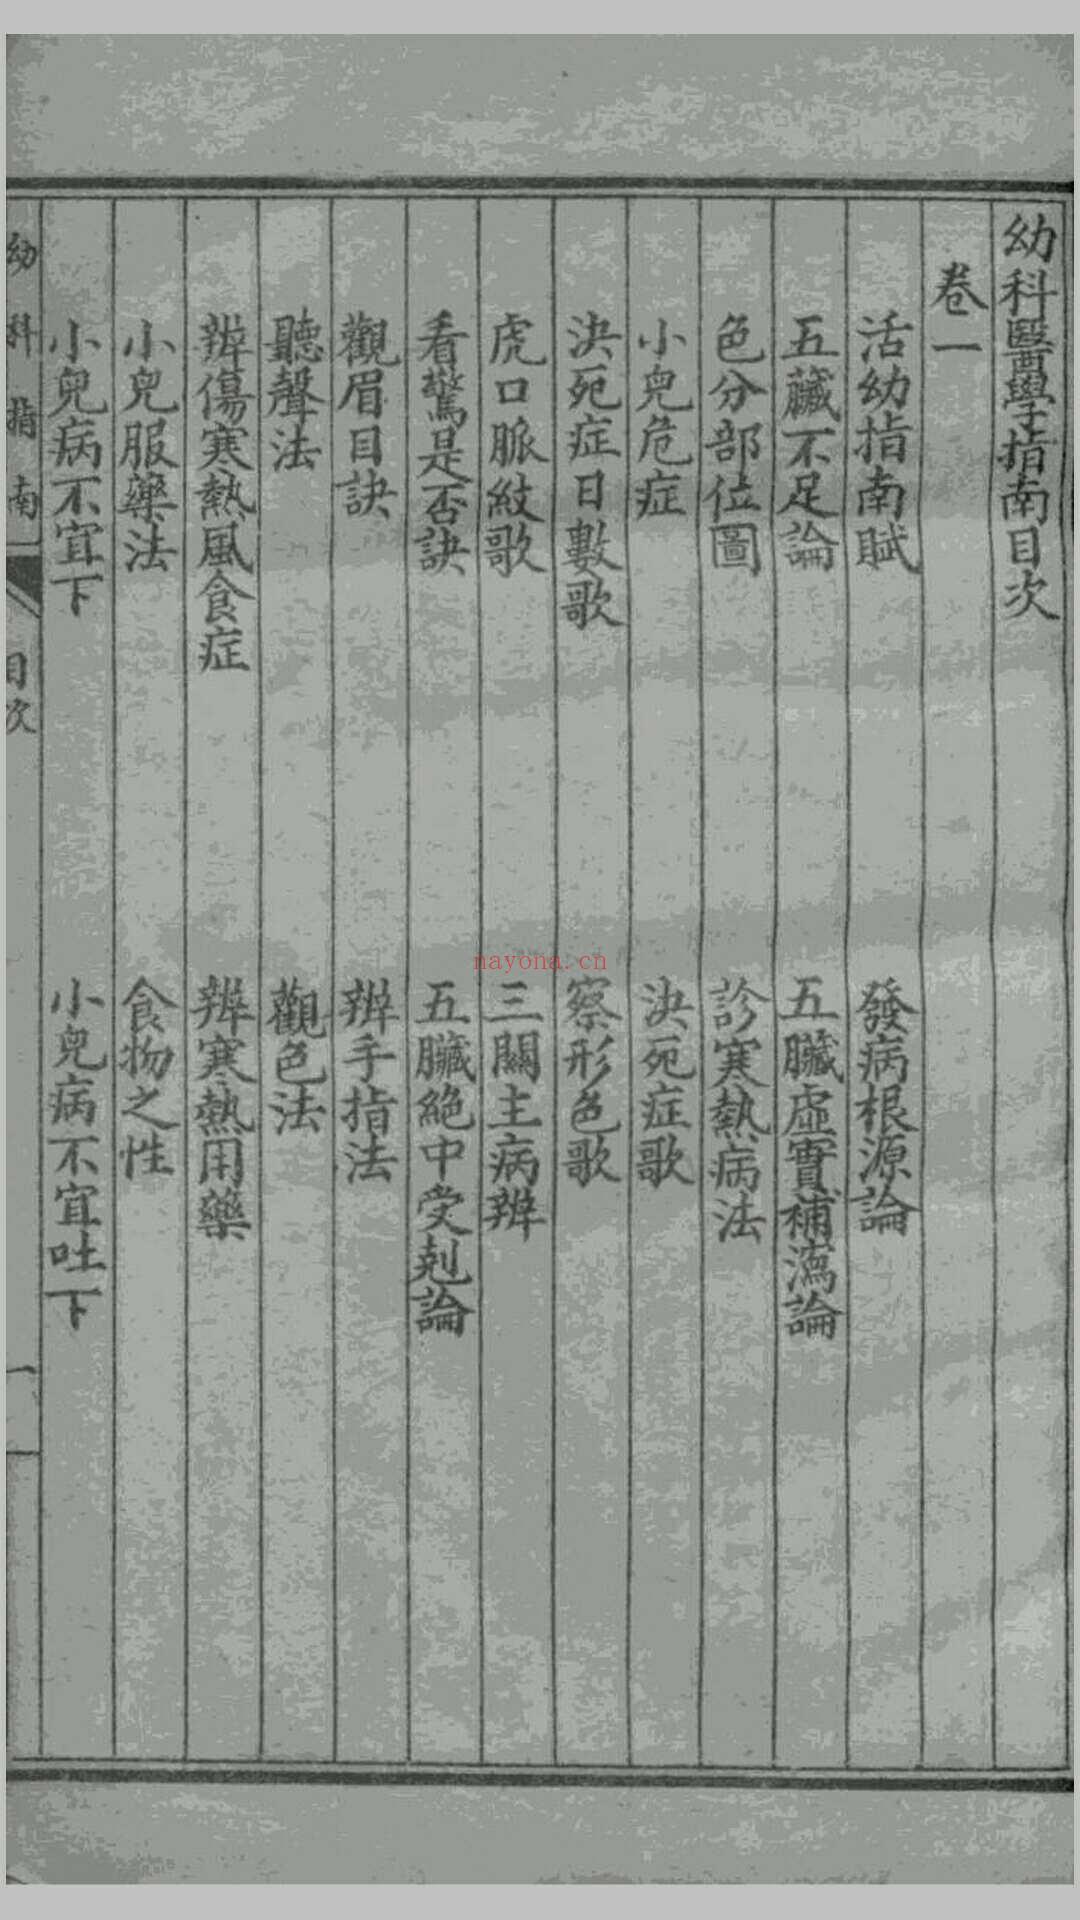 幼科醫學指南目次
卷一
活幼指南賦　發病根源論
五臟不足論　五臟虛實補瀉論
色分部位圖　診寒熱病法
小兒危症　決死症歌
決死症日數歌　察形色歌
虎口脈紋歌　三關主病辨
看驚是否訣　五臟絕中受剋論
觀眉目訣　辨手指法
聽聲法　觀色法
辨傷寒熱風食症　辨寒熱用藥
小兒服藥法　食物之性
小兒病不宜下　小兒病不宜吐下
幼科指南　目次　一
nayona.cn